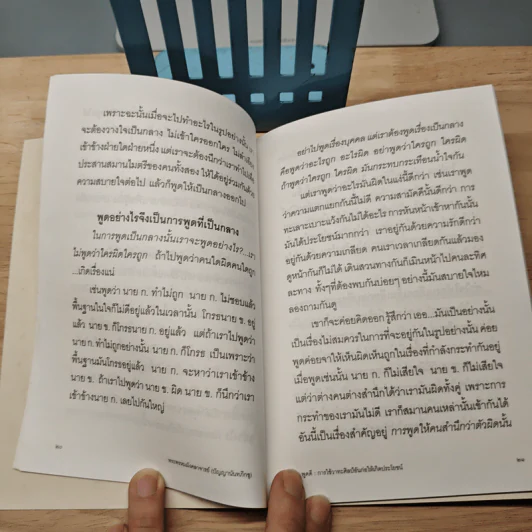 เพราะฉะนั้นเมื่อจะไปทำอะไรในรูปอย่างนั้น
จะต้องวางใจเป็นกลาง ไม่เข้าใครออกใคร ไม่ลำเอียง
เข้าข้างฝ่ายใดฝ่ายหนึ่ง แต่เราจะต้องนึกว่าเราทำไปเพื่อ
ประสานสมานไมตรีของคนทั้งสอง ให้ได้อยู่ร่วมกันด้วย
ความสบายใจต่อไป แล้วก็พูดให้เป็นกลางออกไป
พูดอย่างไรจึงเป็นการพูดที่เป็นกลาง
ในการพูดเป็นกลางนั้นเราจะพูดอย่างไร?...เรา
ไม่พูดว่าใครผิดใครถูก ถ้าไปพูดว่าคนใดผิดคนใดถูก
...เกิดเรื่องแน่
เช่นพูดว่า นาย ก. ทำไม่ถูก นาย ก. ไม่ชอบแล้ว
พื้นฐานในใจก็ไม่ดีอยู่แล้วในเวลานั้น โกรธนาย ข. อยู่
แล้ว นาย ข. ก็โกรธนาย ก. อยู่แล้ว แต่ถ้าเราไปพูดว่า
นาย ก. ทำไม่ถูกอย่างนั้น นาย ก. ก็โกรธ เป็นเพราะว่า
พื้นฐานมันโกรธอยู่แล้ว นาย ก. จะหาว่าเราเข้าข้าง
นาย ข. ถ้าเราไปพูดว่า นาย ข. ผิด นาย ข. ก็นึกว่าเรา
เข้าข้างนาย ก. เลยไปกันใหญ่
๒๐
พระพรหมมังคลาจารย์ (ปัญญานันทภิกขุ)
อย่าไปพูดเรื่องบุคคล แต่เราต้องพูดเรื่องเป็นกลาง
คือพูดว่าอะไรถูก อะไรผิด อย่าพูดว่าใครถูก ใครผิด
ถ้าพูดว่าใครถูก ใครผิด มันกระทบกระเทือนน้ำใจกัน
แต่เราพูดว่าอะไรมันผิดในแง่นี้ดีกว่า เช่นเราพูด
ว่าความแตกแยกกันนี้ไม่ดี ความสามัคคีนั้นดีกว่า การ
ทะเลาะเบาะแว้งกันไม่ได้อะไร การหันหน้าเข้าหากันนั้น
มันได้ประโยชน์มากกว่า เราอยู่กันด้วยความรักดีกว่า
อยู่กันด้วยความเกลียด คนเราเวลาเกลียดกันแล้วมอง
ดูหน้ากันก็ไม่ได้ เดินสวนทางกันก็เมินหน้าไปคนละทิศ
ละทาง ทั้งๆที่ต้องพบกันบ่อยๆ อย่างนี้มันสบายใจไหม
ลองถามกันดู
เขาก็จะค่อยคิดออก รู้สึกว่า เออ...มันเป็นอย่างนั้น
เป็นเรื่องไม่สมควรในการที่จะอยู่กันในรูปอย่างนั้น ค่อย
พูดค่อยจาให้เห็นผิดเห็นถูกในเรื่องที่กำลังกระทำกันอยู่
เมื่อพูดเช่นนั้น นาย ก. ก็ไม่เสียใจ นาย ข. ก็ไม่เสียใจ
แต่ว่าต่างคนต่างสำนึกได้ว่าเรามันผิดทั้งคู่ เพราะการ
กระทำของเรามันไม่ดี เราก็สมานคนเหล่านั้นเข้ากันได้
อันนี้เป็นเรื่องสำคัญอยู่ การพูดให้คนสำนึกว่าตัวผิดนั้น
พูดดี : การใช้วาทะศิลป์อันก่อให้เกิดประโยชน์
๒๑